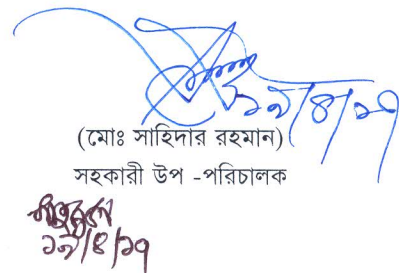 ১৯/৪/১৭
(মোঃ সাহিদার রহমান)
সহকারী উপ -পরিচালক
১৯/৪/১৭